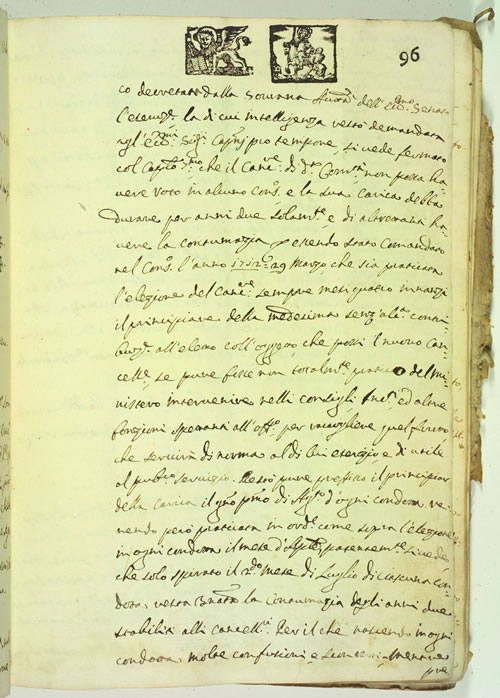 96
co decretata dalla Sovrana dell' Ecc.mo Senato
l'esecuz.e la di cui intelligenza restò demandata
agl'Ecc.mi Sig.i Cap.ni pro tempore, si vede fermato
col Cap.lo che il Canc.re di d.ta Com.tà non possa ha-
vere voto in alcuno Cons.o e la sua carica debba
durare per anni due solam.te e di altretanti ha-
vere la contumazia essendo stato comandato
nel Cons.o l'anno 1712 29 Marzo che sia praticata
l'elezione del Canc.re sempre mesi quatro innanzi
il principiare della medesima senz'alc.a contri-
buz.e all'eletto coll'oggetto, che possi il nuovo Can-
cell.e, se pure fosse non totalm.te pratico del mi-
nistero intervenire nelli consigli ed altre
fonzioni spetanti all'off.o per racogliere quel
che servirà di norma al di lui esercizio, e di utile
al publ.co servizio. Restò pure prefisso il principiar
della carica il g.no p.mo di Ag.to d'ogni condotta, ve-
nendo però praticata in ord.e come sopra l'elezione
in ogni condotta il mese d'Ap.le, si vede,
che solo spirato il 2.do mese di Luglio di ciascuna con-
dotta, resta la Contumazia degli anni due
stabiliti alli cancell.i Per il che nascendo in ogni
condotta molte confusioni, e
pre